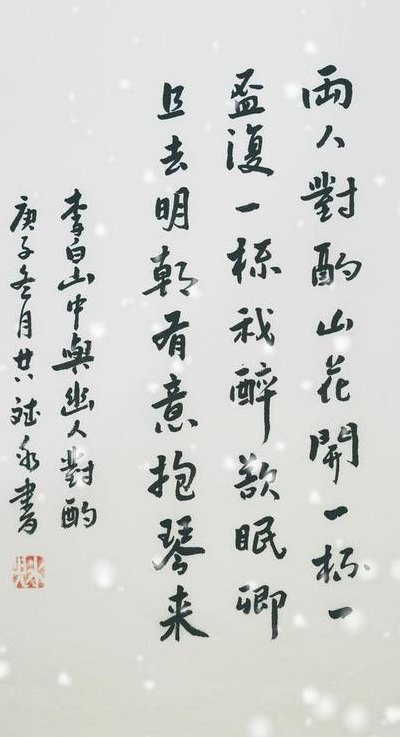 兩人對酌山花開一杯一
盃復一杯我醉欲眠卿
且去明朝有意抱琴来
李白山中與幽人對酌
庚子冬月廿八斌書